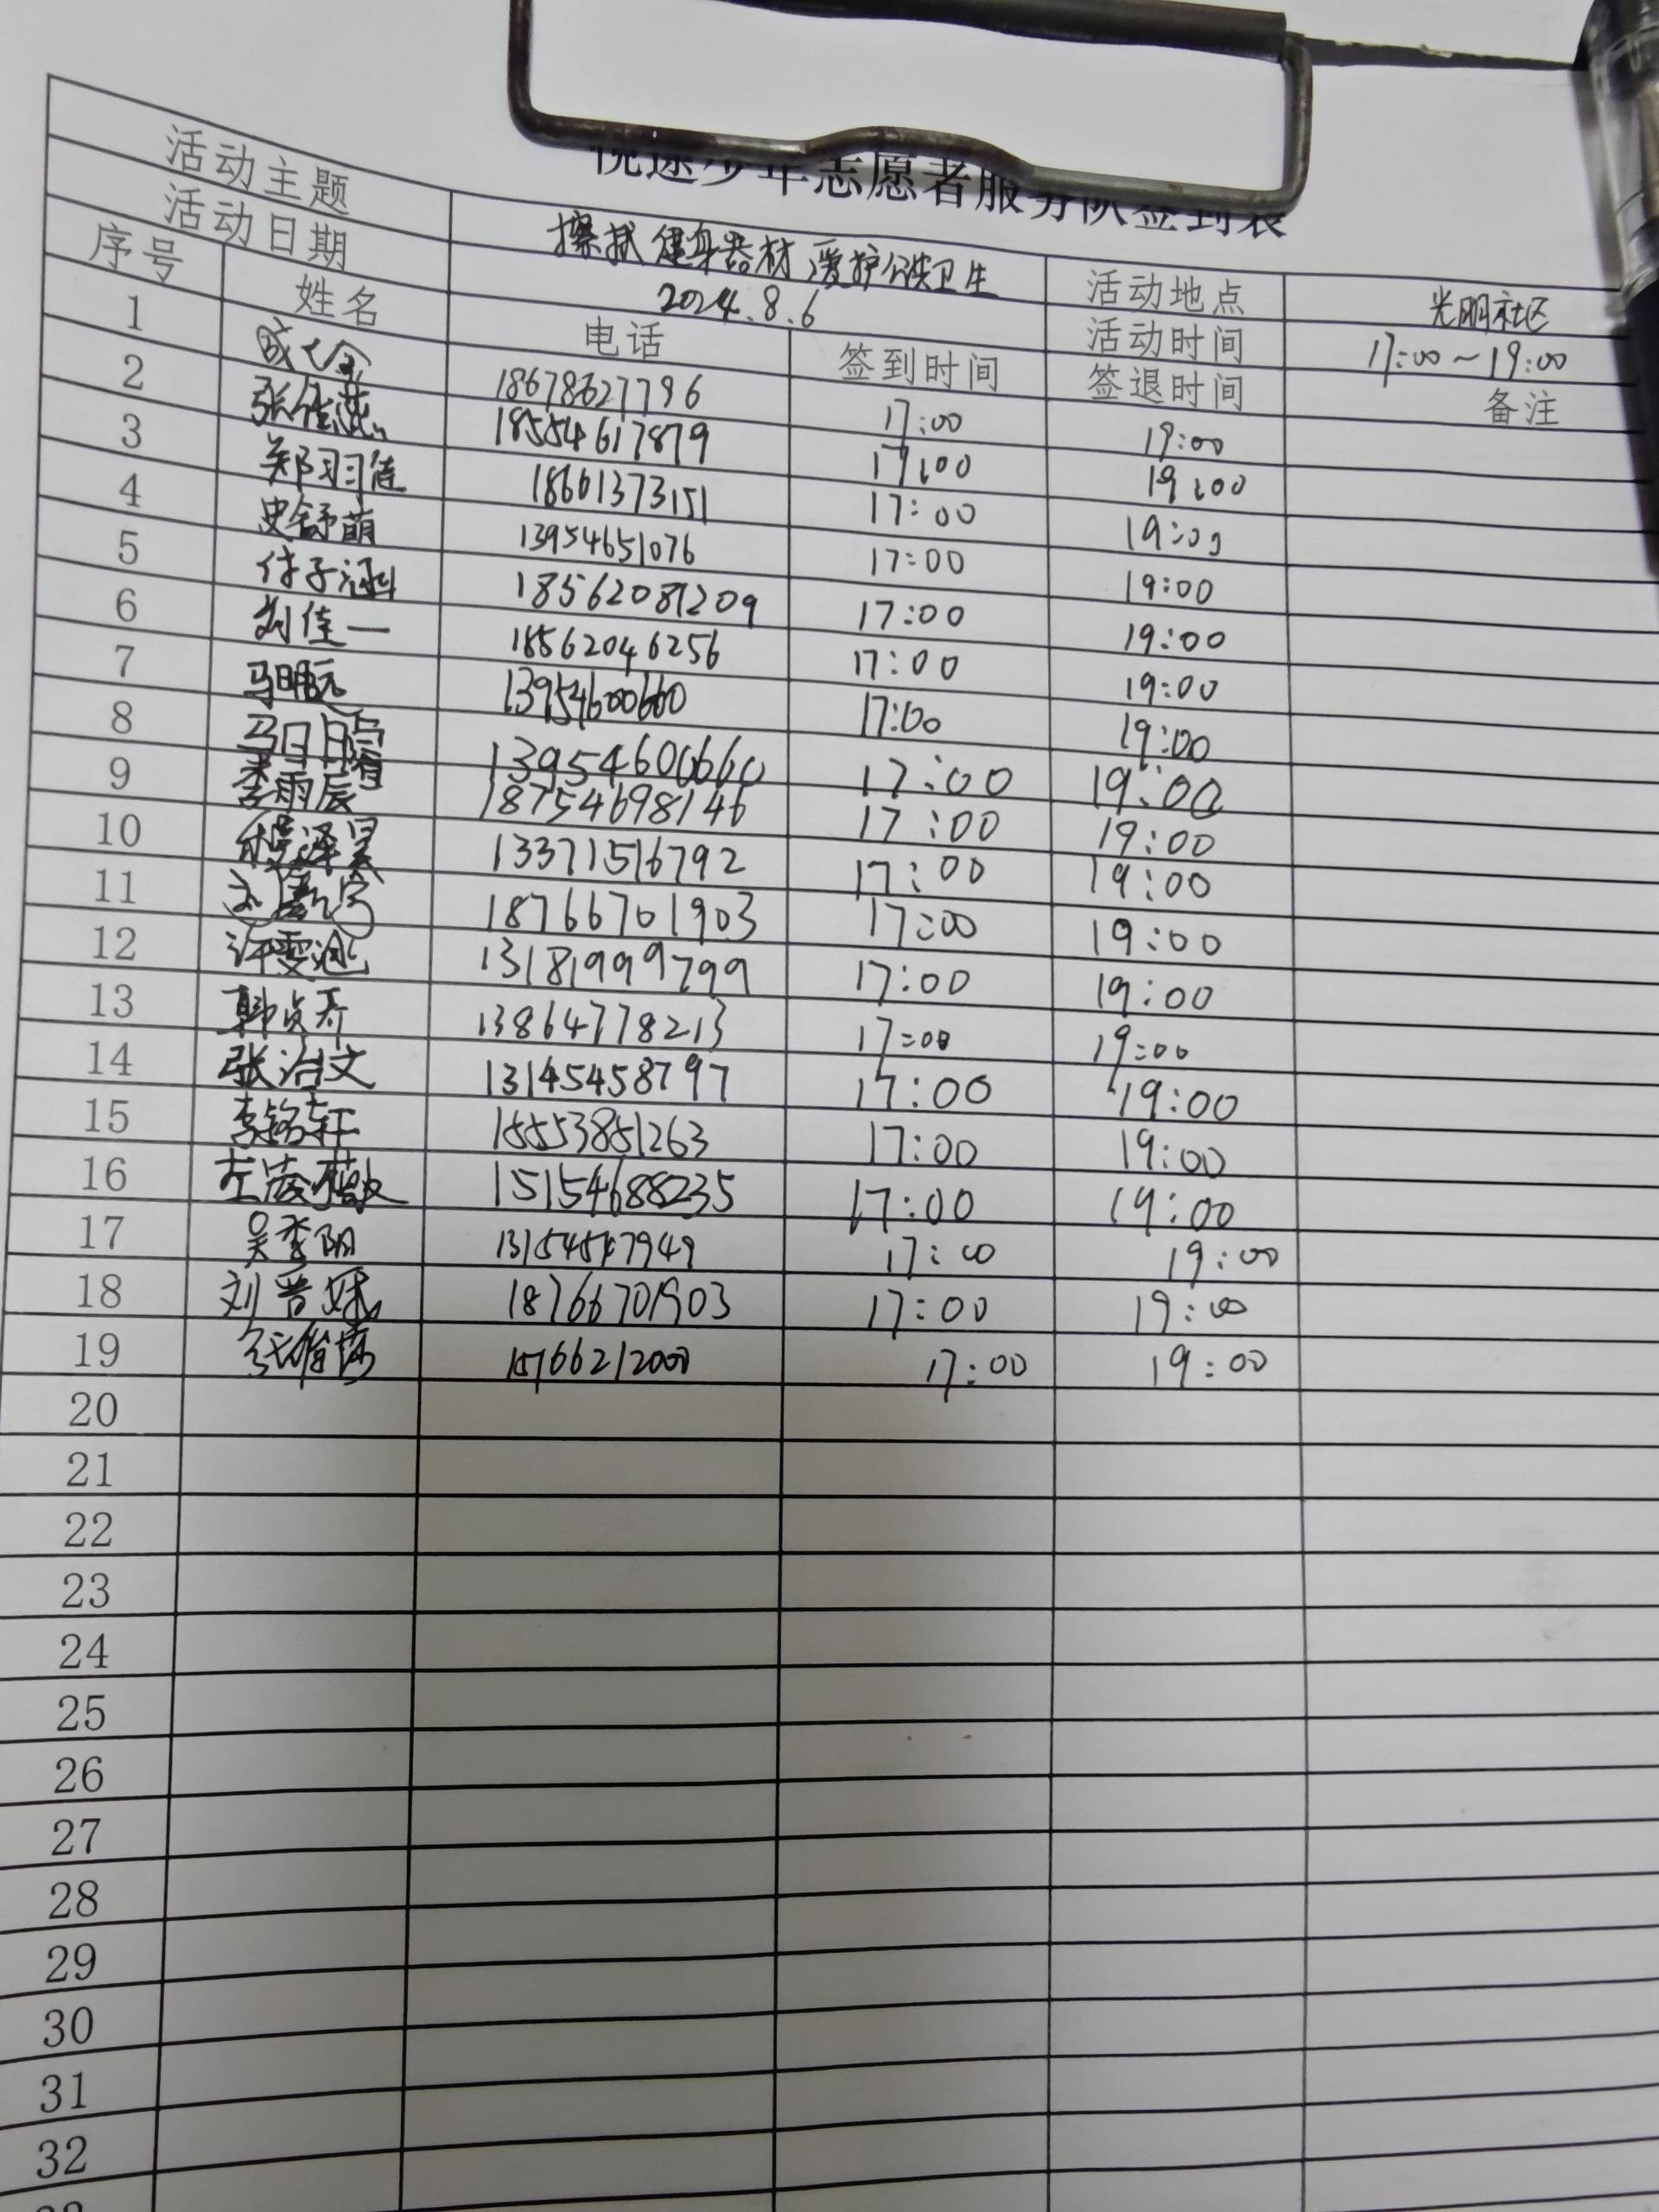 少年志愿者服务队签到表
活动主题 擦拭健身器材,爱护公共卫生 活动地点 光明社区
活动日期 2024.8.6 活动时间 17:00~19:00
序号 姓名 电话 签到时间 签退时间 备注
1 18678627796 17:00 19:00
2 18554617879 17:00 19:00
3 18661373151 17:00 19:00
4 史舒萌 13954651076 17:00 19:00
5 18562081209 17:00 19:00
6 刘佳一 18562046256 17:00 19:00
7 13954600660 17:00 19:00
8 13954600660 17:00 19:00
9 李雨辰 18754698146 17:00 19:00
10 13371516792 17:00 19:00
11 18766701903 17:00 19:00
12 许雯迪 13181999799 17:00 19:00
13 13864778213 17:00 19:00
14 张治文 13145458797 17:00 19:00
15 李铭轩 15553851263 17:00 19:00
16 15154688235 17:00 19:00
17 17:00 19:00
18 18766701903 17:00 19:00
19 15766212000 17:00 19:00
20
21
22
23
24
25
26
27
28
29
30
31
32